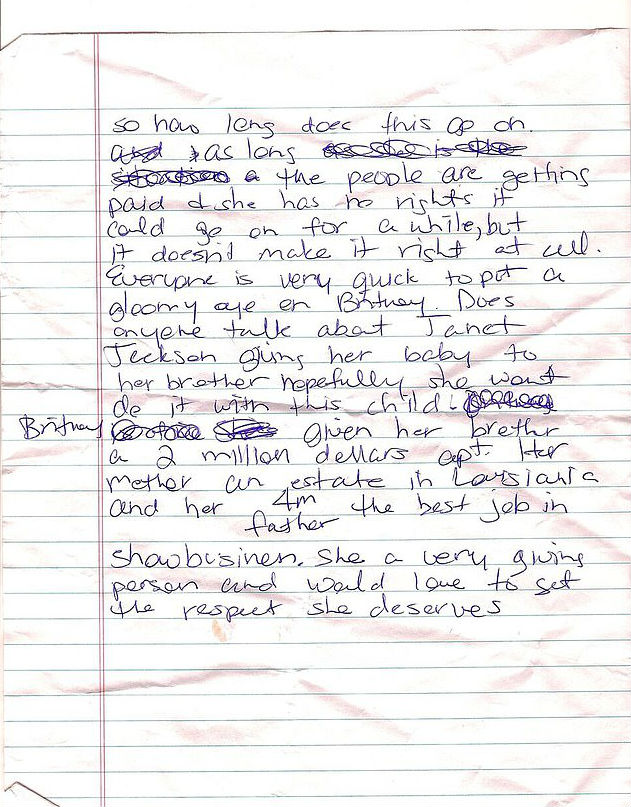 so how long does this go on.
as long
the people are getting
paid & she has no rights it
could go on for a while, but
it doesn't make it right at all.
Everyone is very quick to put a
gloomy eye on Britney. Does
anyone talk about Janet
Jackson giving her baby to
her brother hopefully she wont
do it with this child.
Britney given her brother
a 2 million dollars apt. Her
mother an estate in Louisiania
and her father 4m the best job in
showbusiness. She a very giving
person and would love to get
the respect she deserves